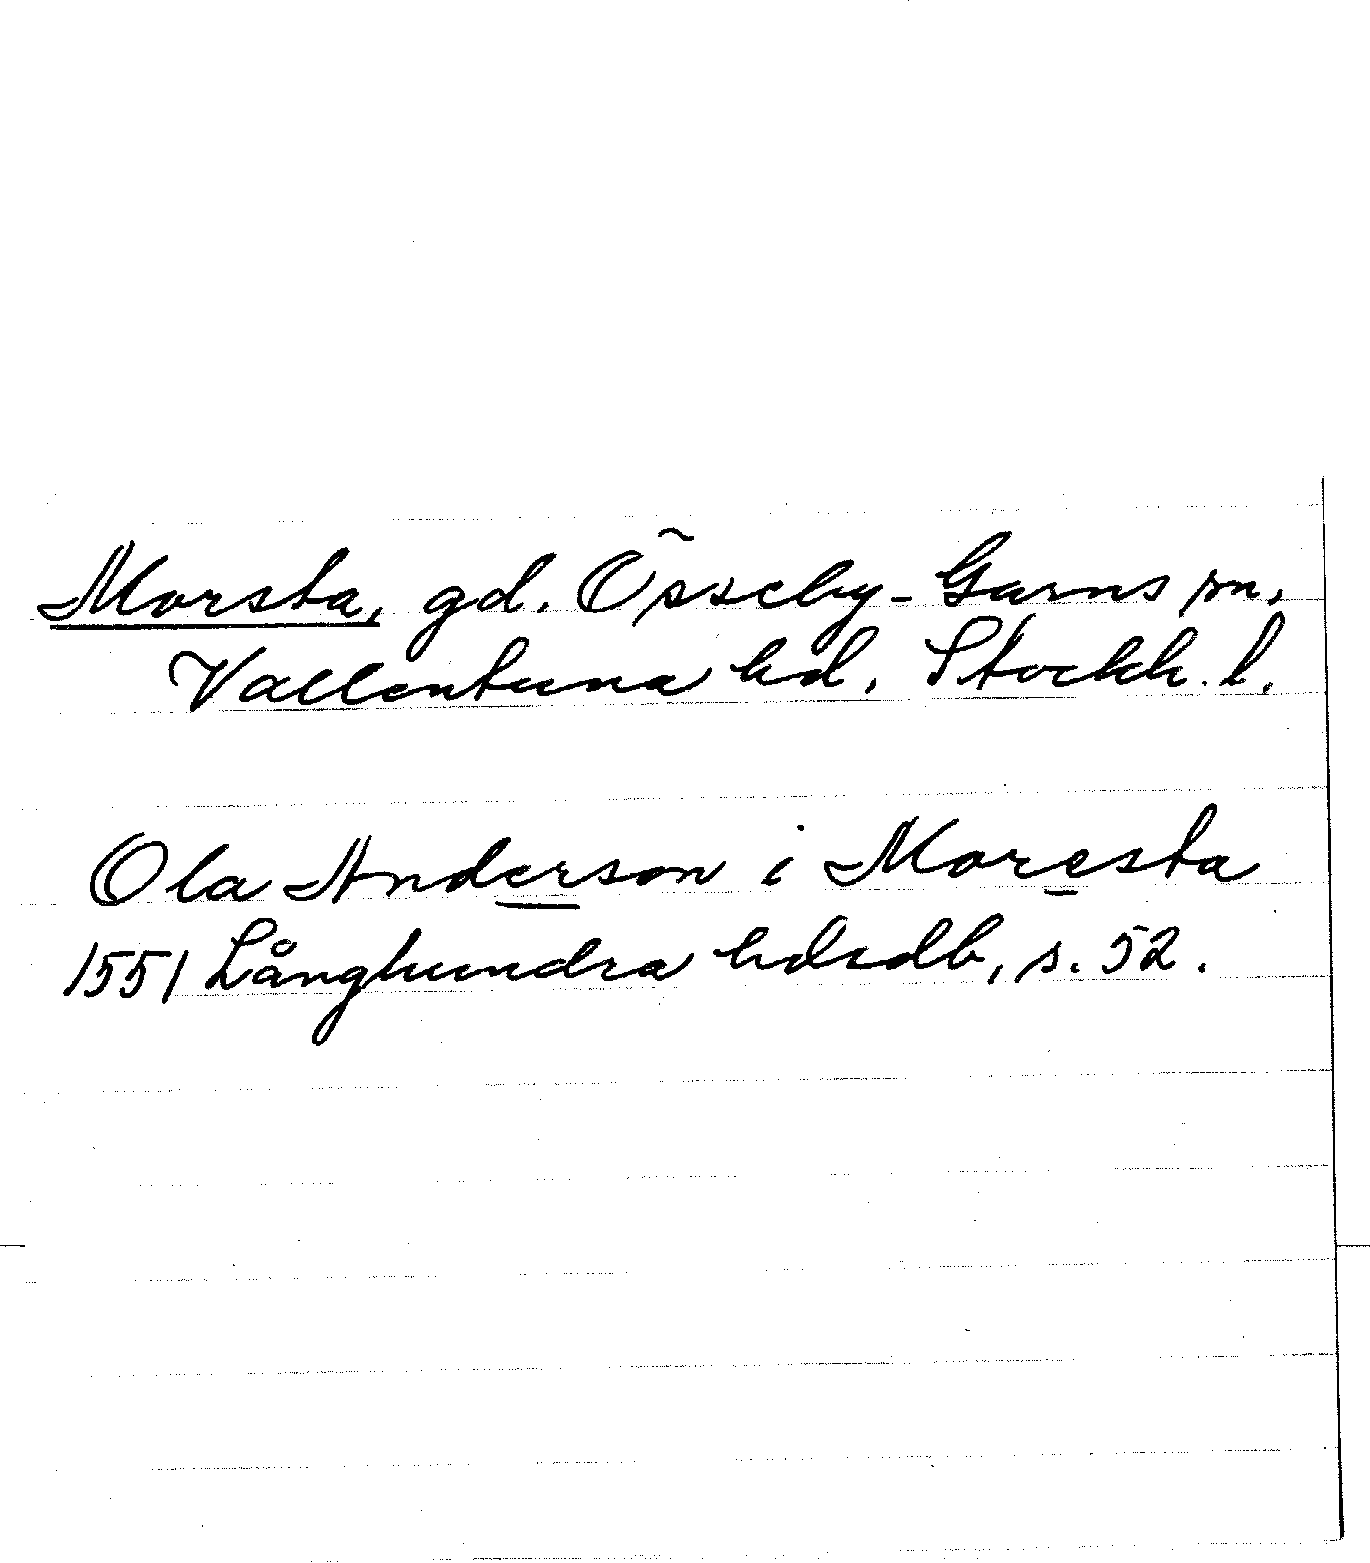 Morsta, gd. Össeby-Garns sn,
Vallentuna hd, Stockh. l.
Ola Anderson i Moresta
1551 Långhundra hdsdb, s. 52.